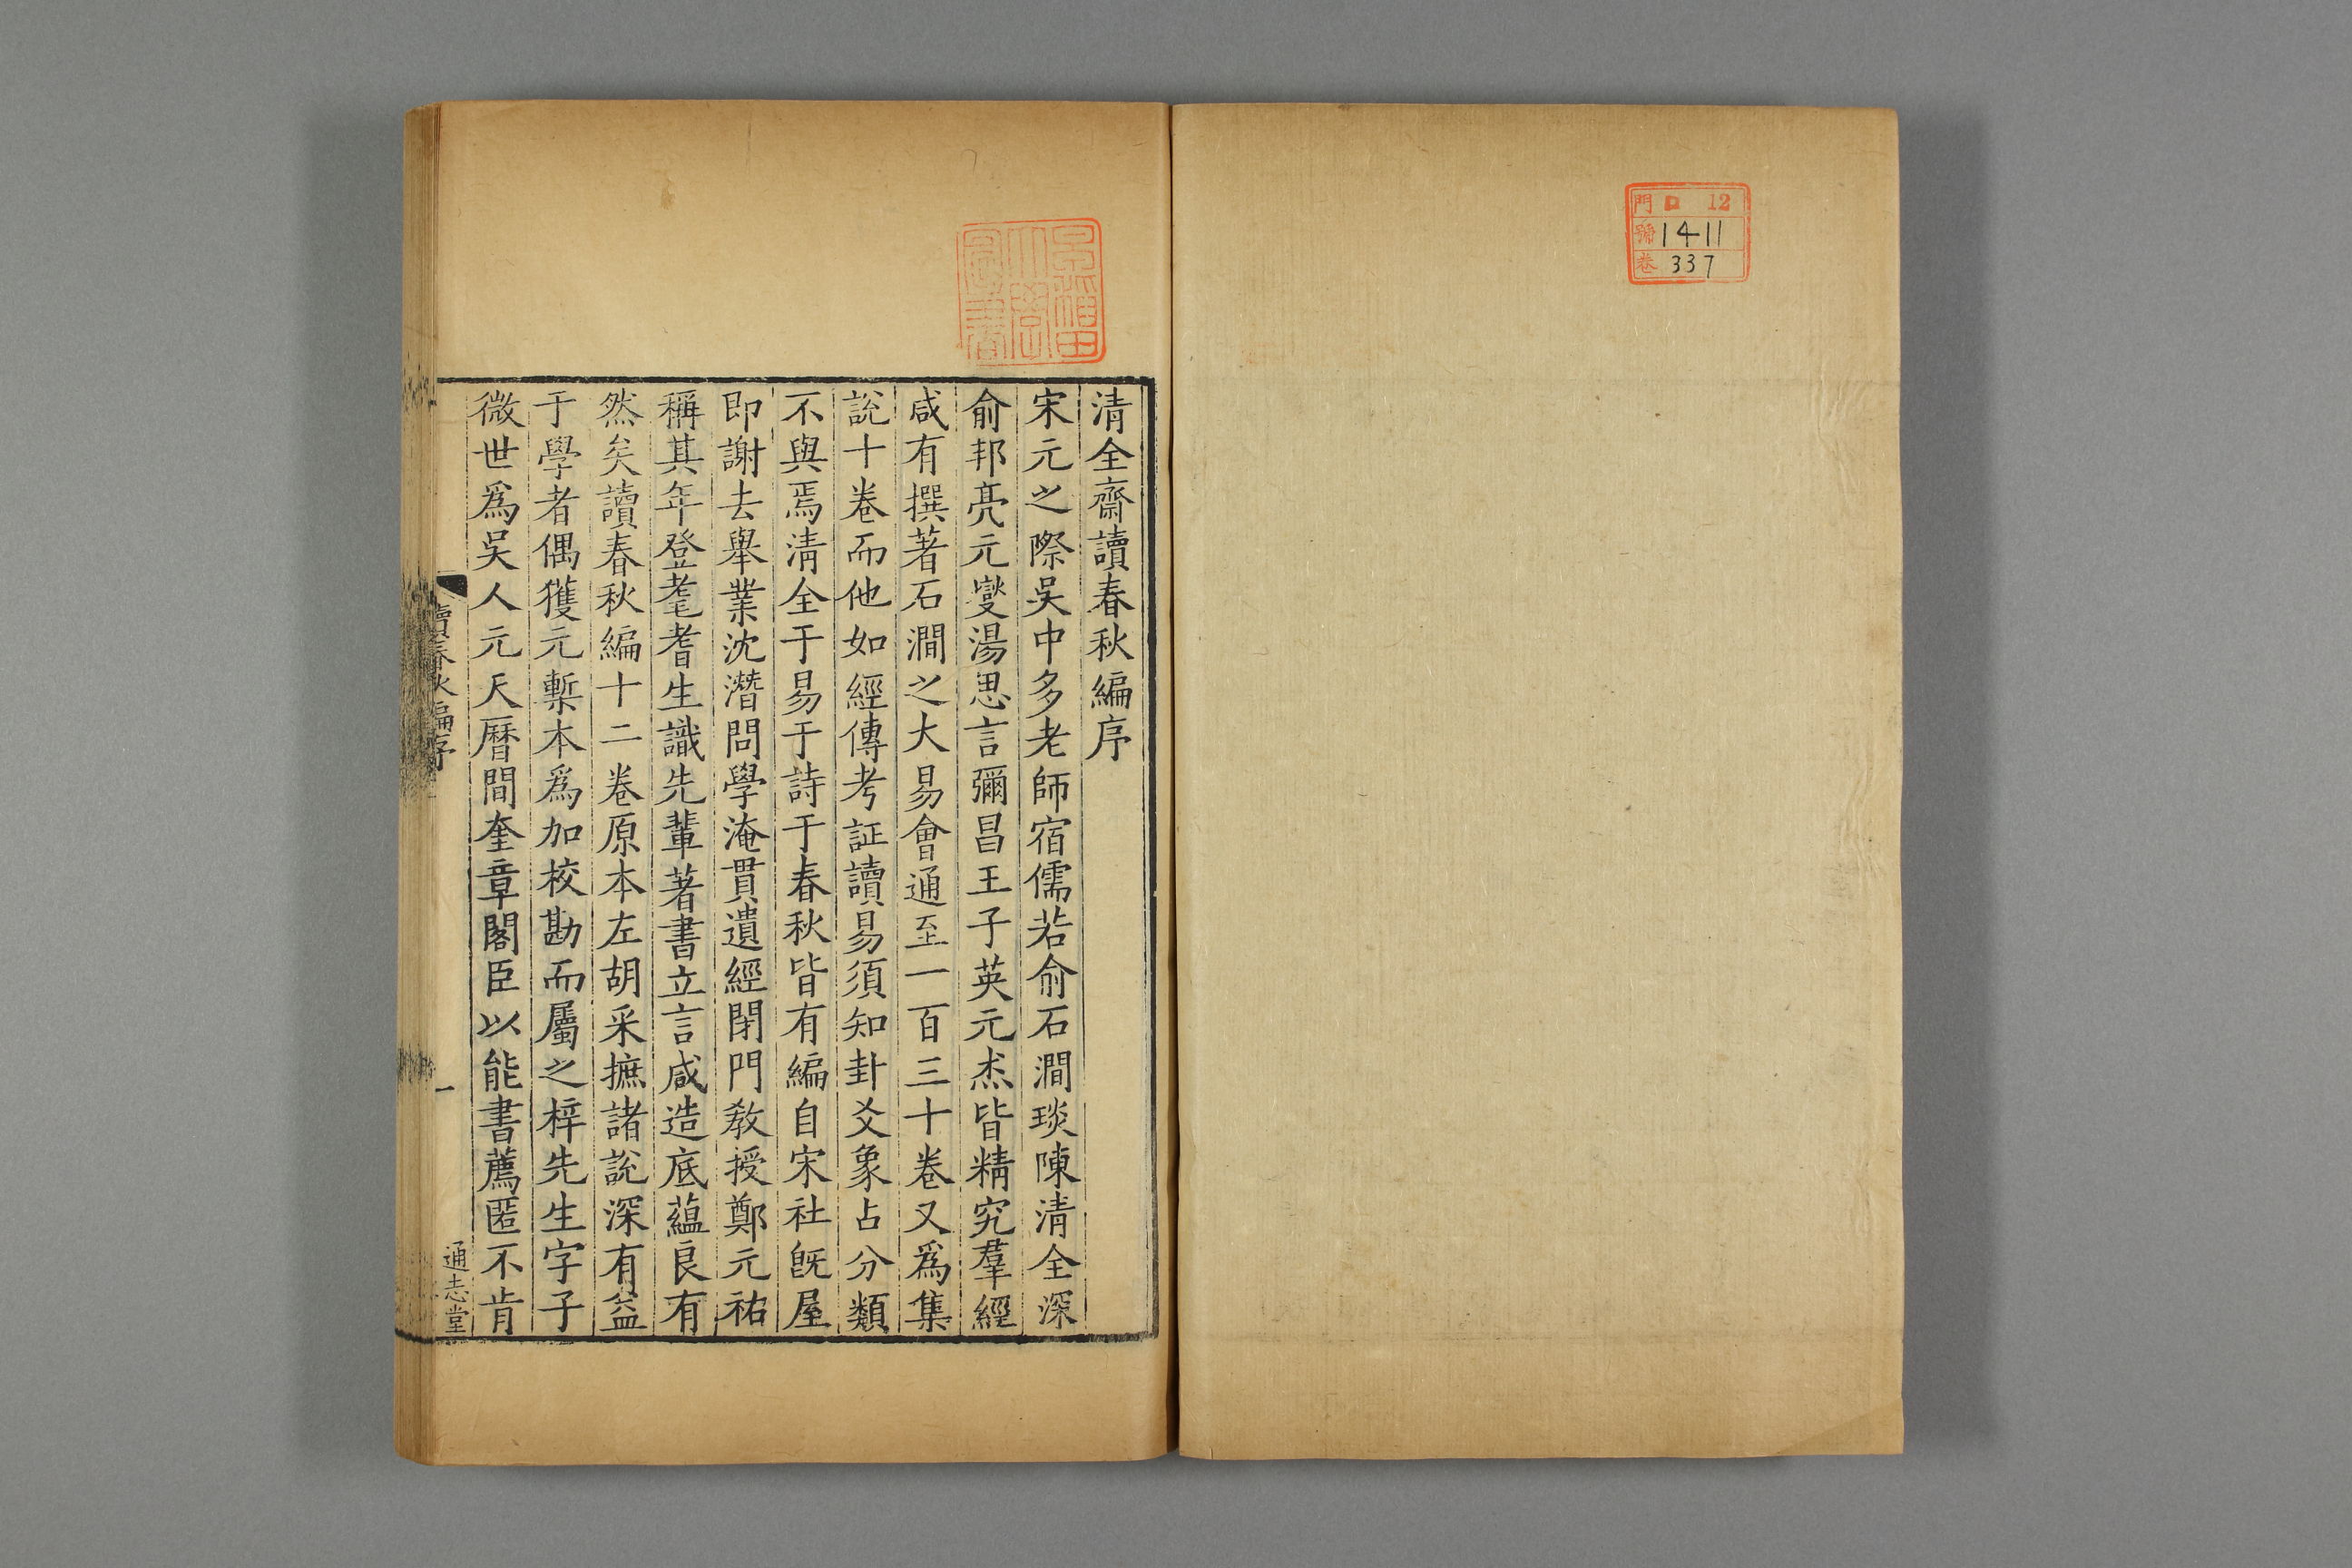 門 口 12
號 1411
卷 337
早稲田
大學
圖書
清全齋讀春秋編序
宋元之際吳中多老師宿儒若俞石澗琰陳清全深
俞邦亮元燮湯思言彌昌王子英元杰皆精究羣經
咸有撰著石澗之大易會通至一百三十卷又爲集
說十卷而他如經傳考証讀易須知卦爻象占分類
不與焉清全于易于詩于春秋皆有編自宋社旣屋
即謝去舉業沈潛問學淹貫遺經閉門教授鄭元祐
稱其年登耄耆生識先輩著書立言咸造底蘊良有
然矣讀春秋編十二卷原本左胡采摭諸說深有益
于學者偶獲元槧本爲加校勘而屬之梓先生字子
微世爲吳人元天曆間奎章閣臣以能書薦匿不肯
讀春秋編序
一
通志堂